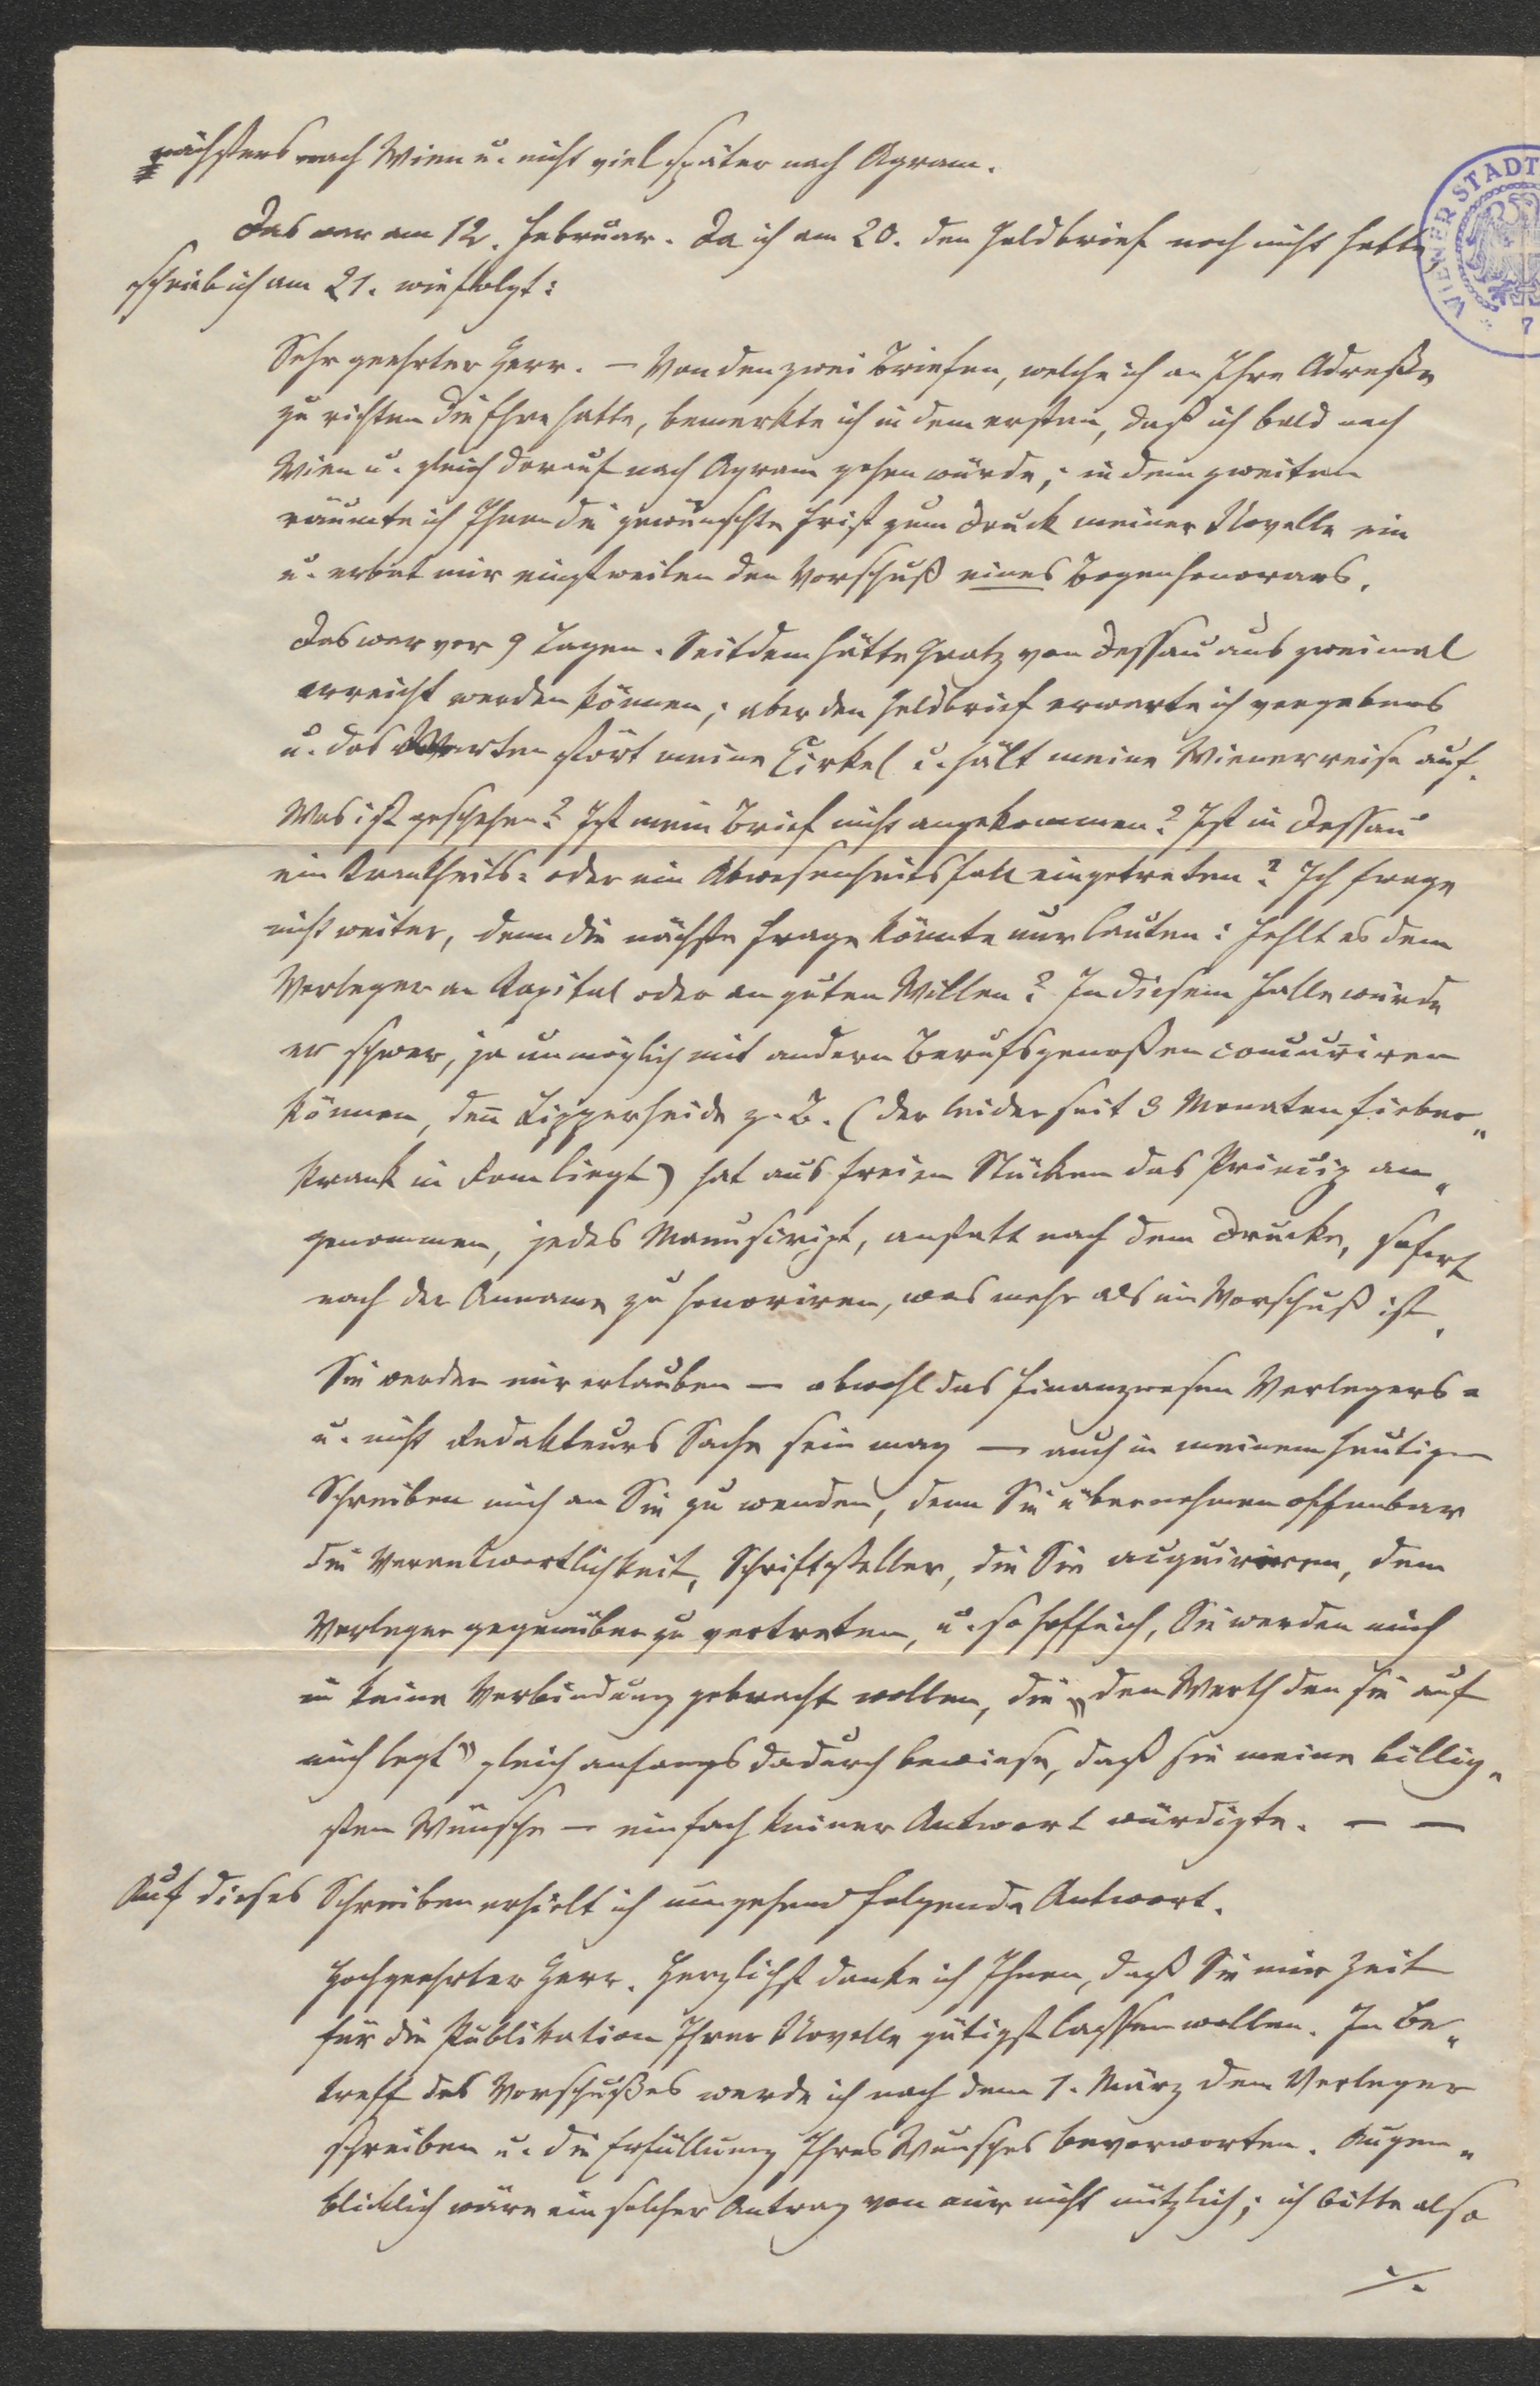 nächstens nach Wien u. nicht viel später nach Agram.
Das war am 12. Februar. Da ich am 20. den Geldbrief noch nicht hatte,
schrieb ich am 21. wie folgt:
WIENER STADT
7
Sehr geehrter Herr. – Von den zwei Briefen, welche ich an Ihre Adreße
zu richten die Ehre hatte, bemerkte ich in dem ersten, daß ich bald nach
Wien u. gleich darauf nach Agram gehen würde; in dem zweiten
räumte ich Ihnen die gewünschte Frist zum Druck meiner Novelle ein
u. erbat mir einstweilen den Vorschuß eines Bogenhonorars.
Das war vor 9 Tagen. Seitdem hätte Gratz von Dessau aus zweimal
erreicht werden können; aber den Geldbrief erwarte ich vergebens
u. das Warten stört meine Cirkel u. hält meine Wienerreise auf.
Was ist geschehen? Ist mein Brief nicht angekommen? Ist in Dessau
ein Krankheits- oder ein Abwesenheitsfall eingetreten? Ich frage
nicht weiter, denn die nächste Frage könnte nur lauten: Fehlt es dem
Verleger an Kapital oder an gutem Willen? In diesem Falle würde
er schwer, ja unmöglich mit andern Berufsgenoßen concuriren
können, den̄ Lipperheide z. B. (der leider seit 3 Monaten fieber„
krank in Rom liegt) hat aus freien Stücken das Princip an„
genommen, jedes Manuscript, anstatt nach dem Drucke, sofort
nach der Anname zu honoriren, was mehr als ein Vorschuß ist.
Sie werden mir erlauben – obwohl das Finanzwesen Verlegers-
u. nicht Redakteurs Sache sein mag – auch in meinem heutigen
Schreiben mich an Sie zu wenden, denn Sie übernehmen offenbar
die Verantwortlichkeit, Schriftsteller, die Sie acquiriren, dem
Verleger gegenüber zu vertreten, u. so hoffe ich, Sie werden mich
in keine Verbindung gebracht wollen, die „den Werth den sie auf
mich legt“ gleich anfangs dadurch bewiese, daß sie meine billig„
sten Wünsche – einfach keiner Antwort würdigte. – –
Auf dieses Schreiben erhielt ich umgehend folgende Antwort.
Hochgeehrter Herr. Herzlichst danke ich Ihnen, daß Sie mir Zeit
für die Publikation Ihrer Novelle gütigst lassen wollen. In Be„
treff des Vorschußes werde ich nach dem 1. März dem Verleger
schreiben u. die Erfüllung Ihres Wunsches bevorworten. Augen„
blicklich wäre ein solcher Antrag von mir nicht nützlich; ich bitte also
./.